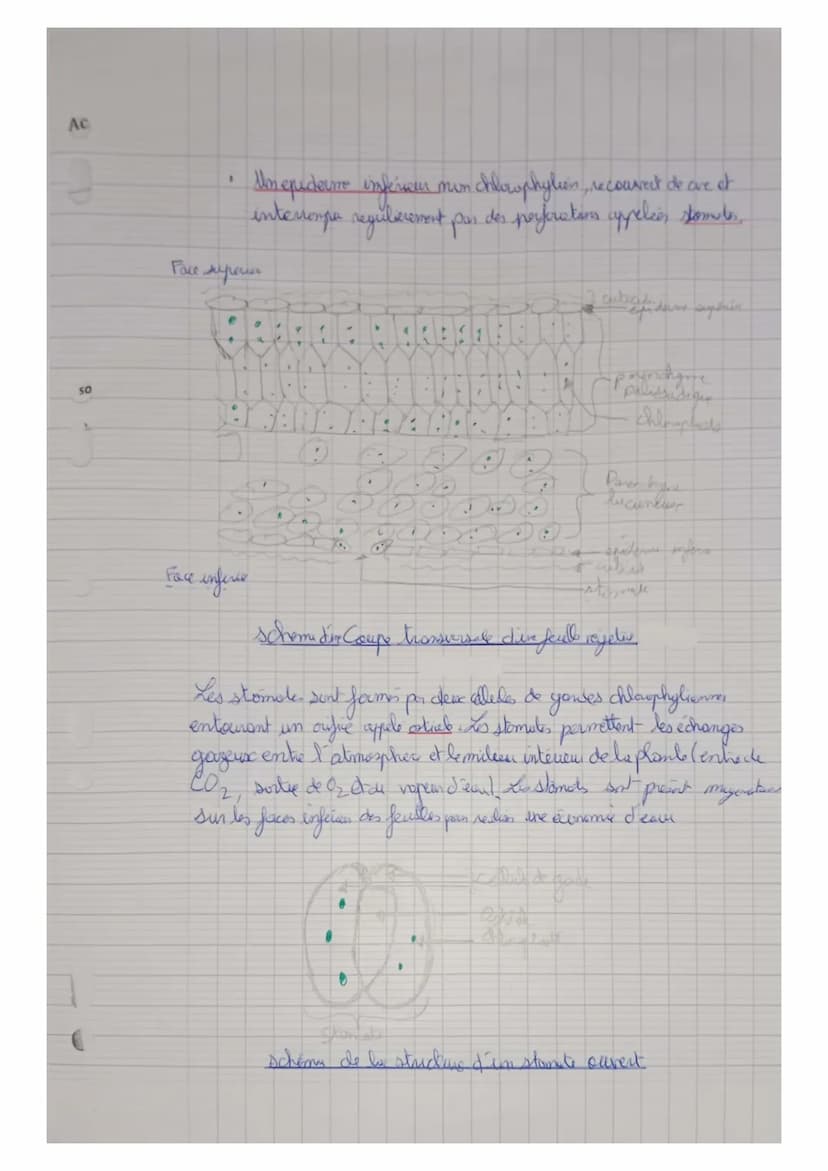 AC
Un epiderme inférieur non chlorophylien, recouvert de cire et
interrompu regulierement par des perforations appelées stomates.
Face superieur
cuticule
epiderme supérieur
parenchyme
palissadique
chloroplaste
50
Parenchyme
lacuneux
epiderme inferieur
cuticule
stomate
Face inferieu
Schema d'une Coupe transversale d'une feuille
Les stomates sont formés par deux cellules de gardes chlorophyliennes
entourant un orifice appelé ostiole. Les stomates permettent les échanges
gazeux entre l'atmosphere et le milieu intérieur de la plante (entrée de
CO2, sortie de O2 et de vapeur d'eau). Les stomates sont présent
sur les faces inférieur des feuilles pour une économie d'eau
cellule de garde
Ostiole
chloroplaste
Stomate
schéma de la structure d'un stomate ouvert